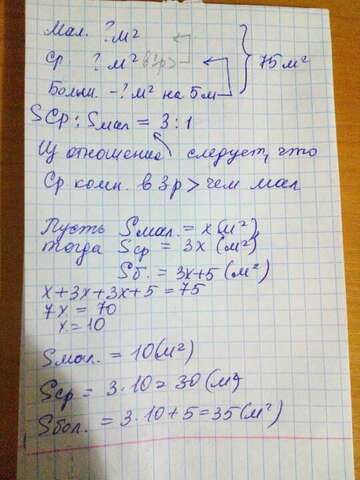 Мал. ? м²
Ср ? м² в 3р > 75 м²
Больш. - ? м² на 5 м
Sср : Sмал = 3 : 1
Из отношения следует, что
Ср комн. в 3 р > чем мал
Пусть Sмал. = x (м²)
тогда Sср = 3x (м²)
Sб. = 3x + 5 (м²)
x + 3x + 3x + 5 = 75
7x = 70
x = 10
Sмал. = 10 (м²)
Sср = 3 · 10 = 30 (м²)
Sбол. = 3 · 10 + 5 = 35 (м²)